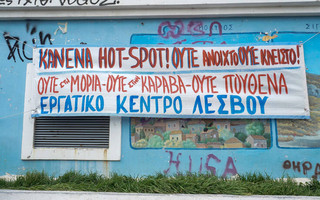 ΚΑΝΕΝΑ HOT-SPOT! ΟΥΤΕ ΑΝΟΙΧΤΟ ΟΥΤΕ ΚΛΕΙΣΤΟ!
ΟΥΤΕ στη ΜΟΡΙΑ-ΟΥΤΕ στον ΚΑΡΑΒΑ-ΟΥΤΕ ΠΟΥΘΕΝΑ
ΕΡΓΑΤΙΚΟ ΚΕΝΤΡΟ ΛΕΣΒΟΥ